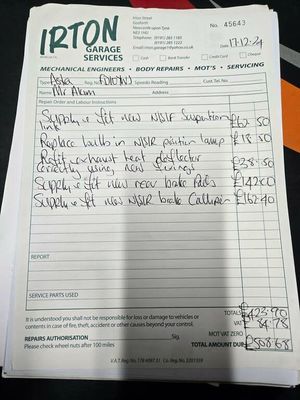 IRTON
GARAGE
SERVICES
Irton Street
Gosforth
Newcastle upon Tyne
NE3
Tel: (0191) 285 1181
(0191) 285 1222
No. 45643
Date 17-12-24
Cash
Bank Transfer
Credit Card
Cheque
MECHANICAL ENGINEERS • BODY REPAIRS • MOT'S • SERVICING
Type Astra Reg. No. Speedo Reading Cust. Tel. No.
Name Mr Akam
Repair Order and Labour Instructions
Supply & fit new NSIF suspention link £62.50
Replace bulb in NSIR position lamp £18.50
Refit exhaust heat deflector
correctly using new fixings £38.50
Supply & fit new rear brake Pads £142.00
Supply & fit new NSIR brake Calliper £162.40
REPORT
SERVICE PARTS USED
It is understood you shall not be responsible for loss or damage to vehicles
or contents in case of fire, theft, accident or other causes beyond your control.
REPAIRS AUTHORISATION Sig.
Please check wheel nuts after 100 miles
TOTALS £423.90
VAT £84.78
MOT VAT ZERO
TOTAL AMOUNT DUE £508.68